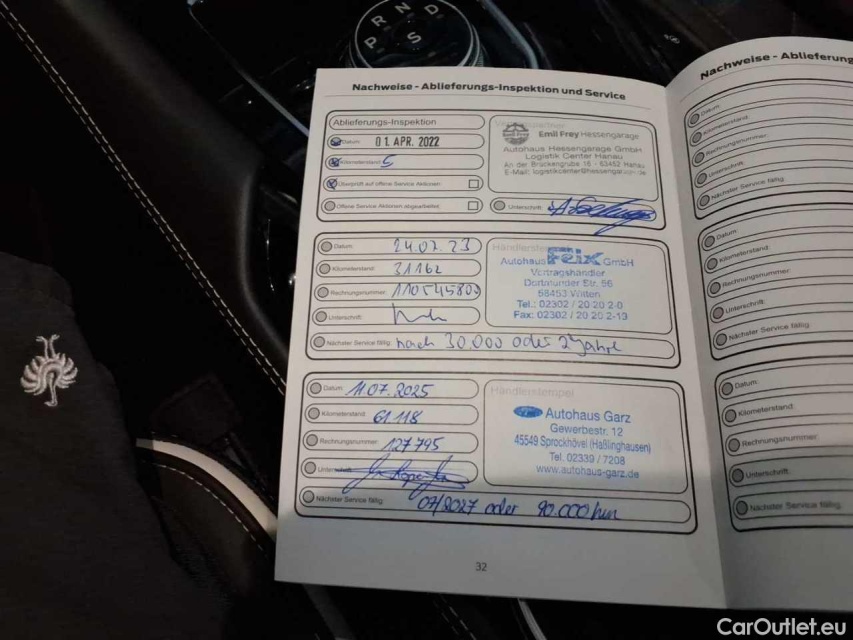 P R N D
S
Nachweise - Ablieferungs-Inspektion und Service
Ablieferungs-Inspektion
Datum: 01. APR. 2022
Kilometerstand: 5
Überprüft auf offene Service Aktionen
Offene Service Aktionen abgearbeitet
Emil Frey Hessengarage
Autohaus Hessengarage GmbH
Logistik Center Hanau
An der Brückengrube 16 - 63452 Hanau
E-Mail: logistikcenter@hessengarage.de
Unterschrift:
Datum: 24.07.23
Kilometerstand: 31162
Rechnungsnummer: 110545809
Unterschrift:
Nächster Service fällig: nach 30.000 oder 2 Jahre
Autohaus Feix GmbH
Vertragshändler
Dortmunder Str. 56
58453 Witten
Tel.: 02302 / 20 20 2-0
Fax: 02302 / 20 20 2-13
Datum: 11.07.2025
Kilometerstand: 61.118
Rechnungsnummer: 127795
Unterschrift:
Nächster Service fällig: 07/2027 oder 90.000 km
Händlerstempel
Autohaus Garz
Gewerbestr. 12
45549 Sprockhövel (Haßlinghausen)
Tel. 02339 / 7208
www.autohaus-garz.de
32
Nachweise - Ablieferung
Datum:
Kilometerstand:
Rechnungsnummer:
Unterschrift:
Nächster Service fällig:
Datum:
Kilometerstand:
Rechnungsnummer:
Unterschrift:
Nächster Service fällig:
Datum:
Kilometerstand:
Rechnungsnummer:
Unterschrift:
Nächster Service fällig:
CarOutlet.eu